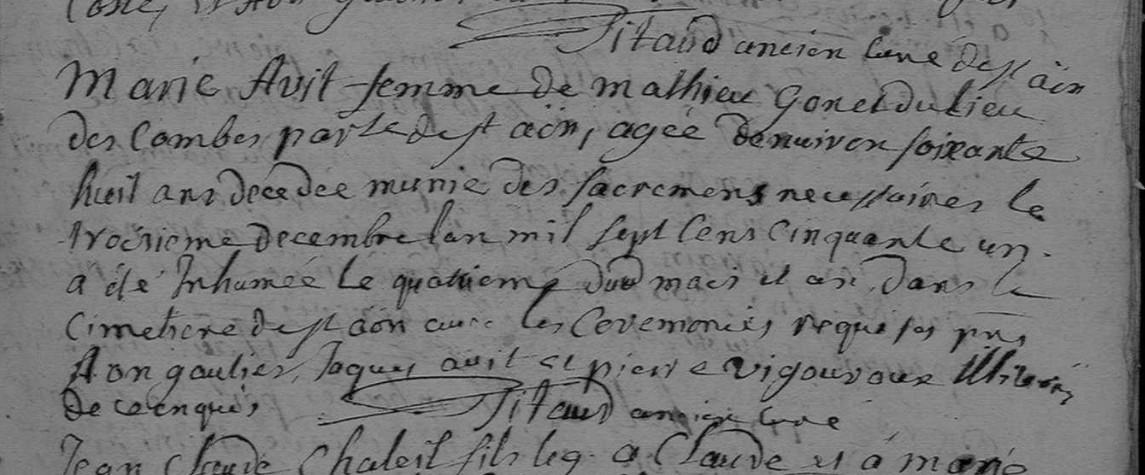 Pitaud ancien curé dest ain
Marie Avit femme de mathieu Gonet du lieu
des Combes parr. dest ain, agée denuiron soixante
huit ans décédée munie des sacremens necessaires le
troisieme decembre lan mil sept cens cinquante un.
a été Inhumée le quatrieme dud mois et an, dans le
Cimetiere dest ain avec les Ceremonies requises pns
Aon gaulier, Jaques avit et pierre vigouroux Illiterés
de ce enquis Pitaud ancien curé
Jean Claude Chaleil fils leg. a Claude et a marie